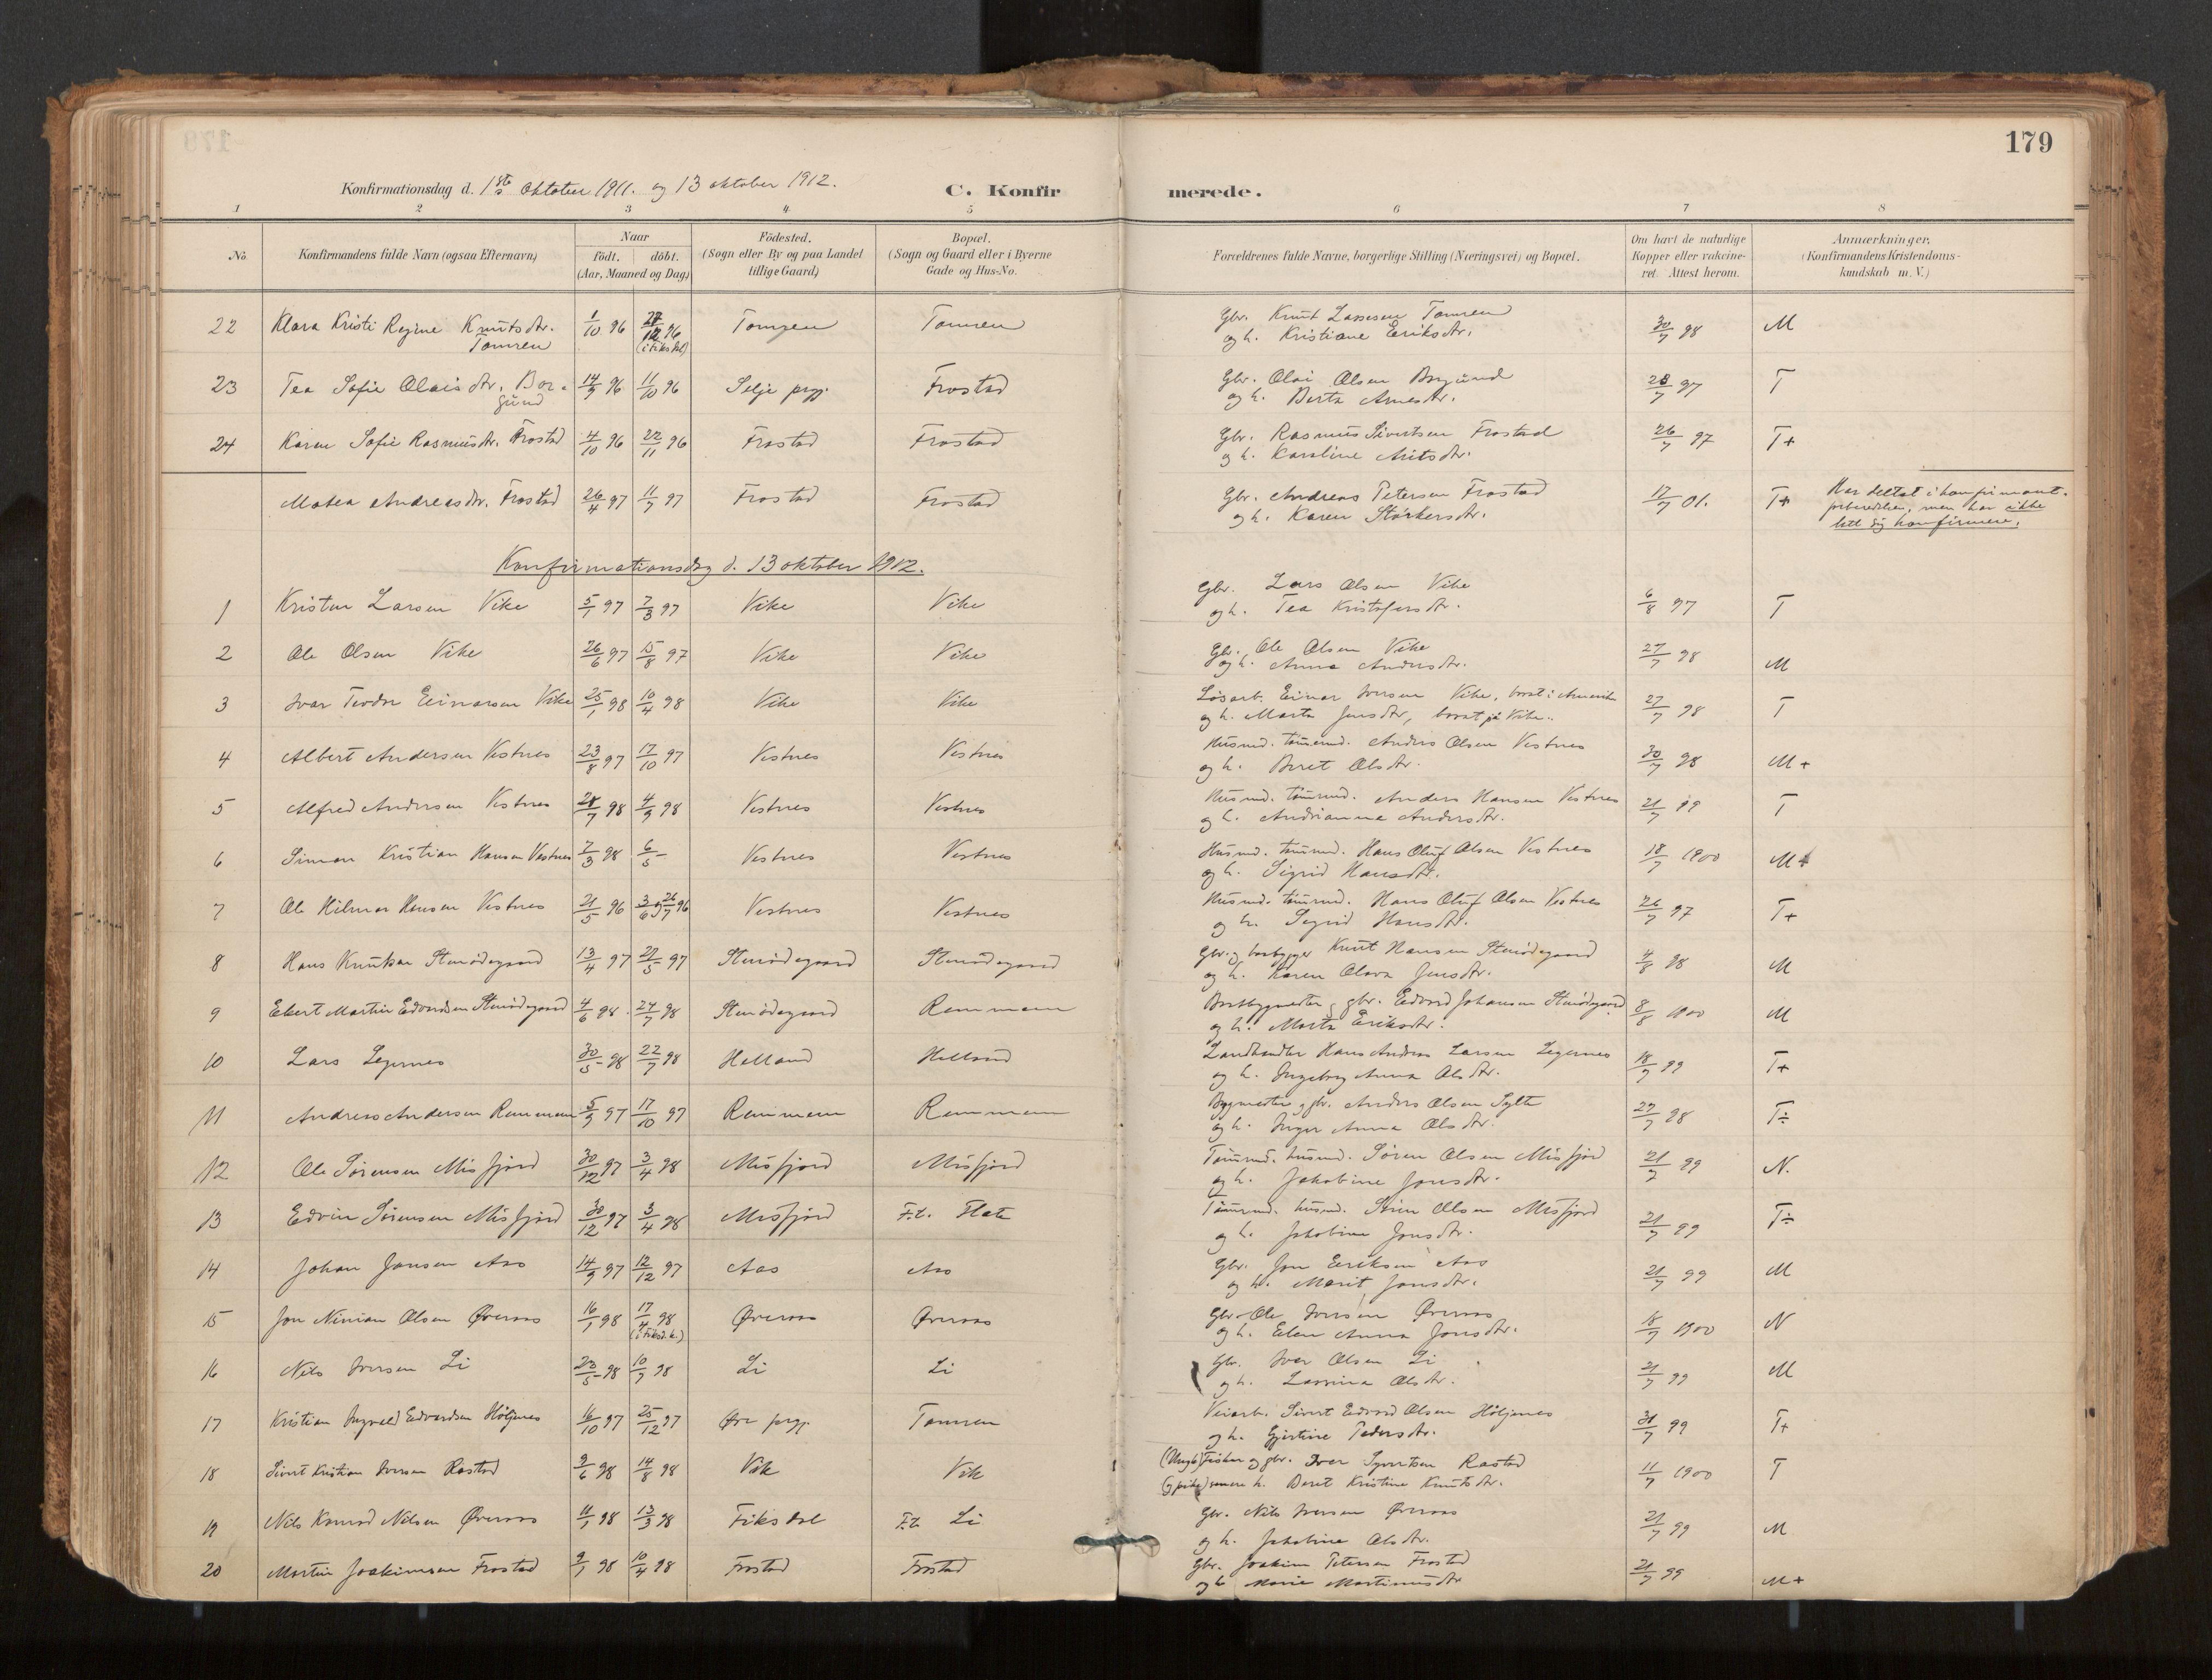 179
Konfirmationsdag d. 1ste oktober 1911. og 13 oktober 1912. C. Konfirmerede.
1 2 3 4 5 6 7 8
No. Konfirmandens fulde Navn (ogsaa Efternavn) Naar født. døbt. (Aar, Maaned og Dag) Födested. (Sogn eller By og paa Landet tillige Gaard) Bopæl. (Sogn og Gaard eller i Byerne Gade og Hus-No. Forældrenes fulde Navne, borgerlige Stilling (Næringsvei) og Bopæl. Om havt de naturlige Kopper eller vakcineret. Attest herom. Anmærkninger, (Konfirmandens Kristendomskundskab m. V.)
22 Klara Kristi Regine Knutsdtr. Tomren 1/10 96 96 (i Fiksdal) Tomren Tomren Gbr. Knut Lassesen Tomren og h. Kristiane Eriksdtr. 30/7 98 M
23 Tea Sofie Olaisdtr. Borgund 14/9 96 11/10 96 Selje prgj. Frostad Gbr. Olai Olsen Borgund og h. Berta Arnesdtr. 28/7 97 T
24 Karen Sofie Rasmusdtr. Frostad 4/10 96 22/11 96 Frostad Frostad Gbr. Rasmus Sivertsen Frostad og h. Karoline 26/7 97 T+
Matea Andreasdtr. Frostad 26/4 97 11/7 97 Frostad Frostad Gbr. Andreas Petersen Frostad og h. Karen Størkersdtr. 17/7 01. T+ Har deltat i konfirmantforberedelsen, men har ikke latt sig konfirmere.
Konfirmationsdag d. 13 oktober 1912.
1 Kristen Larsen Vike 5/1 97 7/3 97 Vike Vike Gbr. Lars Olsen Vike og h. Tea Kristofersdtr. 6/8 97 T
2 Ole Olsen Vike 26/6 97 15/8 97 Vike Vike Gbr. Ole Olsen Vike og h. Anna Andersdtr. 27/7 98 M
3 Ivar Teodor Einarsen Vike 25/1 98 10/4 98 Vike Vike Løsarb. Einar Iversen Vike, bosat i Amerika og h. Marta Jensdtr, bosat på Vike. 27/7 98 T
4 Albert Andersen Vestnes 23/8 97 17/10 97 Vestnes Vestnes Husmd. tømrmd. Anders Olsen Vestnes og h. Beret Olsdtr. 30/7 98 M+
5 Alfred Andersen Vestnes 28/7 98 4/9 98 Vestnes Vestnes Husmd. tømrmd. Anders Hansen Vestnes og h. Andrianna Andersdtr. 21/7 99 T
6 Simon Kristian Hansen Vestnes 7/3 98 6/5 - Vestnes Vestnes Husmd. tømrmd. Hans Oluf Olsen Vestnes og h. Sigrid Hansdtr. 18/7 1900 M+
7 Ole Hilmar Hansen Vestnes 21/5 96 3/6 og 26/7 96 Vestnes Vestnes Husmd. tømrmd. Hans Oluf Olsen Vestnes og h. Sigrid Hansdtr. 26/7 97 T+
8 Hans Knutsen Stenødegaard 13/4 97 97 Stenødegaard Stenødegaard Gbr. og baatbygger Knut Hansen Stenødegaard og h. Karen Olava Jensdtr. 4/8 98 M
9 Ebert Martin Edvardsen Stenødegaard 4/6 98 24/7 98 Stenødegaard Remmem Baatbygmester, gbr. Edvard Johansen Stenødegaard og h. Marta Eriksdtr. 8/8 1900 M
10 Lars Legernes 30/5 98 22/7 98 Helland Helland Landhandler Hans Andreas Larsen Legernes og h. Ingeborg Anna Olsdtr. 18/7 99 T+
11 Andreas Andersen Remmem 5/9 97 17/10 97 Remmem Remmem Bygmester, gbr. Anders Olsen Sylte og h. Inger Anna Olsdtr. 27/7 98 T÷
12 Ole Sørensen Misfjord 30/12 97 3/4 98 Misfjord Misfjord Tømrmd. husmd. Søren Olsen Misfjord og h. Jakobine Jonsdtr. 21/7 99 N.
13 Edvin Sørensen Misfjord 30/12 97 3/4 98 Misfjord F.t. Flate Tømrmd. husmd. Søren Olsen Misfjord og h. Jakobine Jonsdtr. 21/7 99 T÷
14 Johan Jonsen Aas 14/9 97 12/12 97 Aas Aas Gbr. Jon Eriksen Aas og h. Marit Jonsdtr. 21/7 99 M
15 Jon Ninian Olsen Øveraas 16/1 98 17/4 98 (i Fiksd. k.) Øveraas Øveraas Gbr. Ole Iversen Øveraas og h. Elen Anna Jonsdtr. 18/7 1900 N
16 Nils Iversen Li 23/5 98 10/7 98 Li Li Gbr. Iver Olsen Li og h. Lavina Olsdtr. 21/7 99 M
17 Kristian Ingvald Edvardsen Höljenes 16/10 97 25/12 97 Øre prgj. Tomren Veiarb. Sivert Edvard Olsen Höljenes og h. Gjertine Pedersdtr. 31/7 99 T+
18 Sivert Kristian Iversen Rastad 9/6 98 14/8 98 Vik Vik (Ungk) Fisker og gbr. Iver Syvertsen Rastad (og pike) senere h. Beret Kristine Knutsdtr. 11/7 1900 T
19 Nils Konrad Nilsen Øveraas 11/1 98 13/3 98 Fiksdal F.t. Li Gbr. Nils Iversen Øveraas og h. Jakobine Olsdtr. 21/7 99 M
20 Martin Joakimsen Frostad 9/1 98 10/4 98 Frostad Frostad Gbr. Joakim Petersen Frostad og h. Marie Martinusdtr 21/7 99 M+